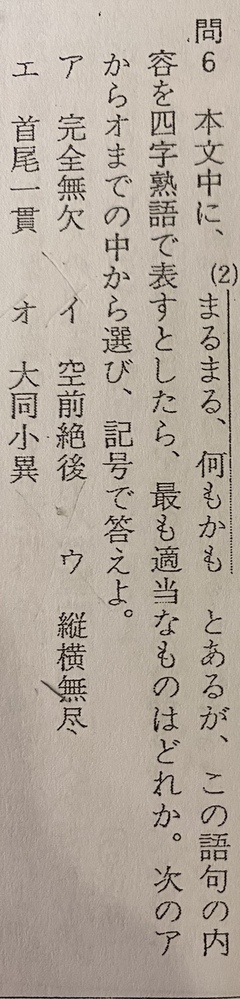 問6　本文中に、(2)まるまる、何もかも　とあるが、この語句の内
容を四字熟語で表すとしたら、最も適当なものはどれか。次のア
からオまでの中から選び、記号で答えよ。
ア　完全無欠　イ　空前絶後　ウ　縦横無尽
エ　首尾一貫　オ　大同小異